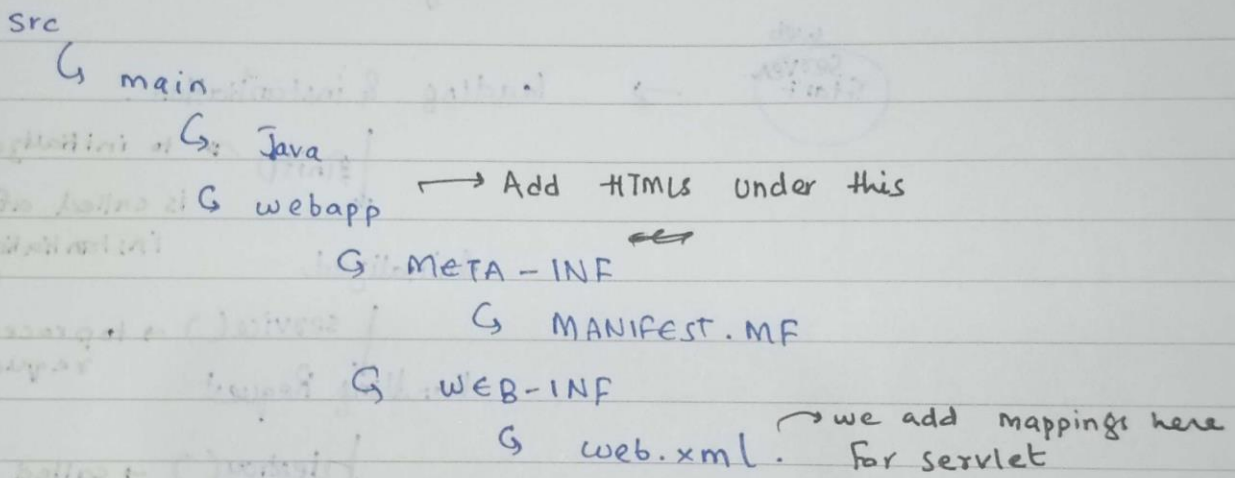 src
↳ main
↳ Java
↳ webapp → Add HTMLs under this
↳ META-INF
↳ MANIFEST.MF
↳ WEB-INF
↳ web.xml. → we add mappings here
for servlet